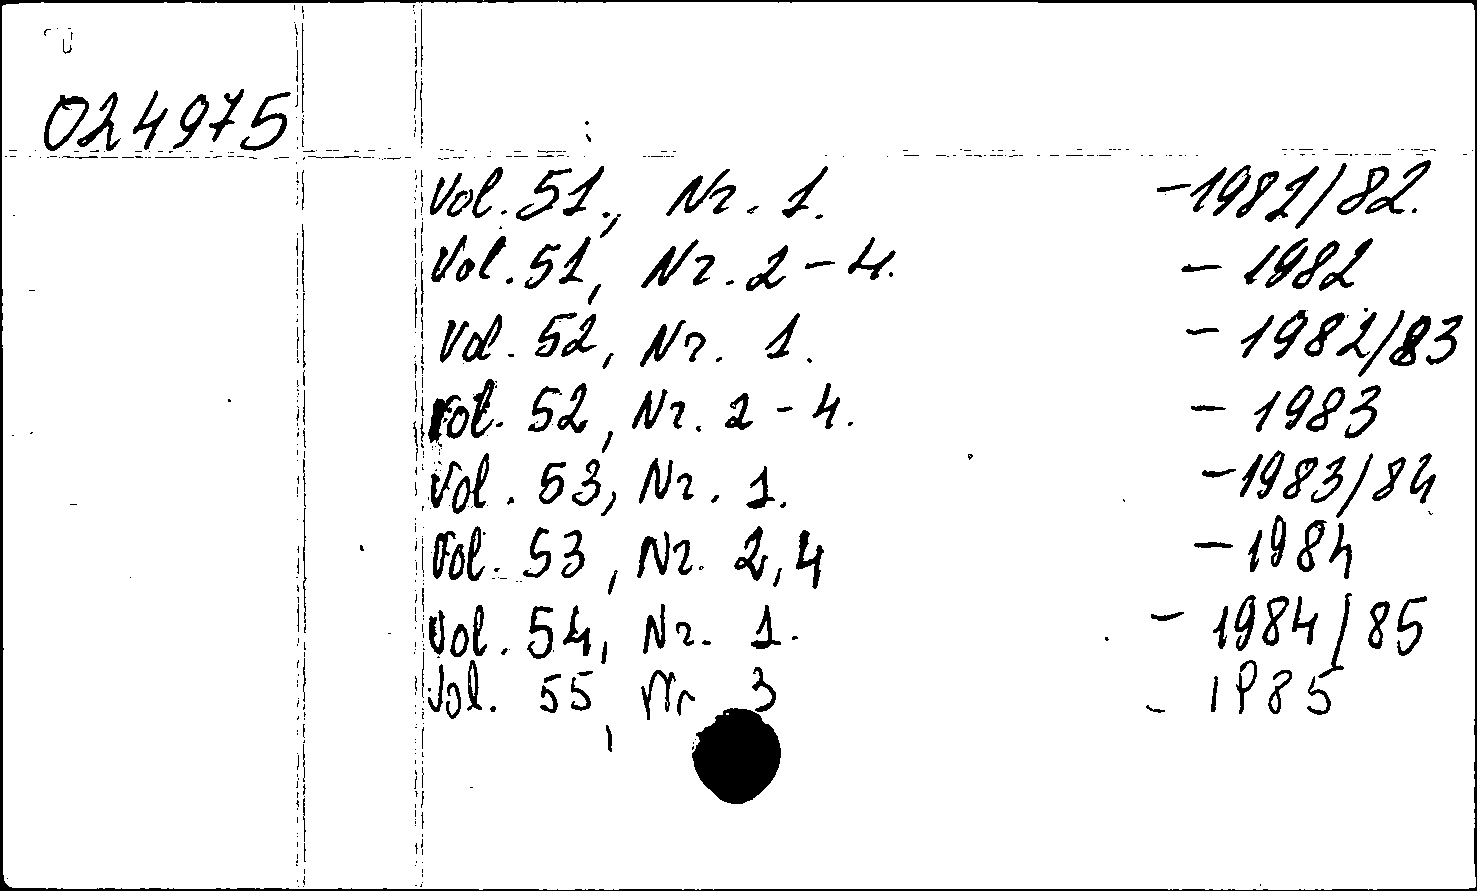 024975
Vol. 51., Nr. 1. - 1981/82.
Vol. 51, Nr. 2-4. - 1982
Vol. 52, Nr. 1. - 1982/83
Vol. 52, Nr. 2-4. - 1983
Vol. 53, Nr. 1. - 1983/84
Vol. 53, Nr. 2,4 - 1984
Vol. 54, Nr. 1. - 1984/85
Vol. 55, Nr 3 - 1985